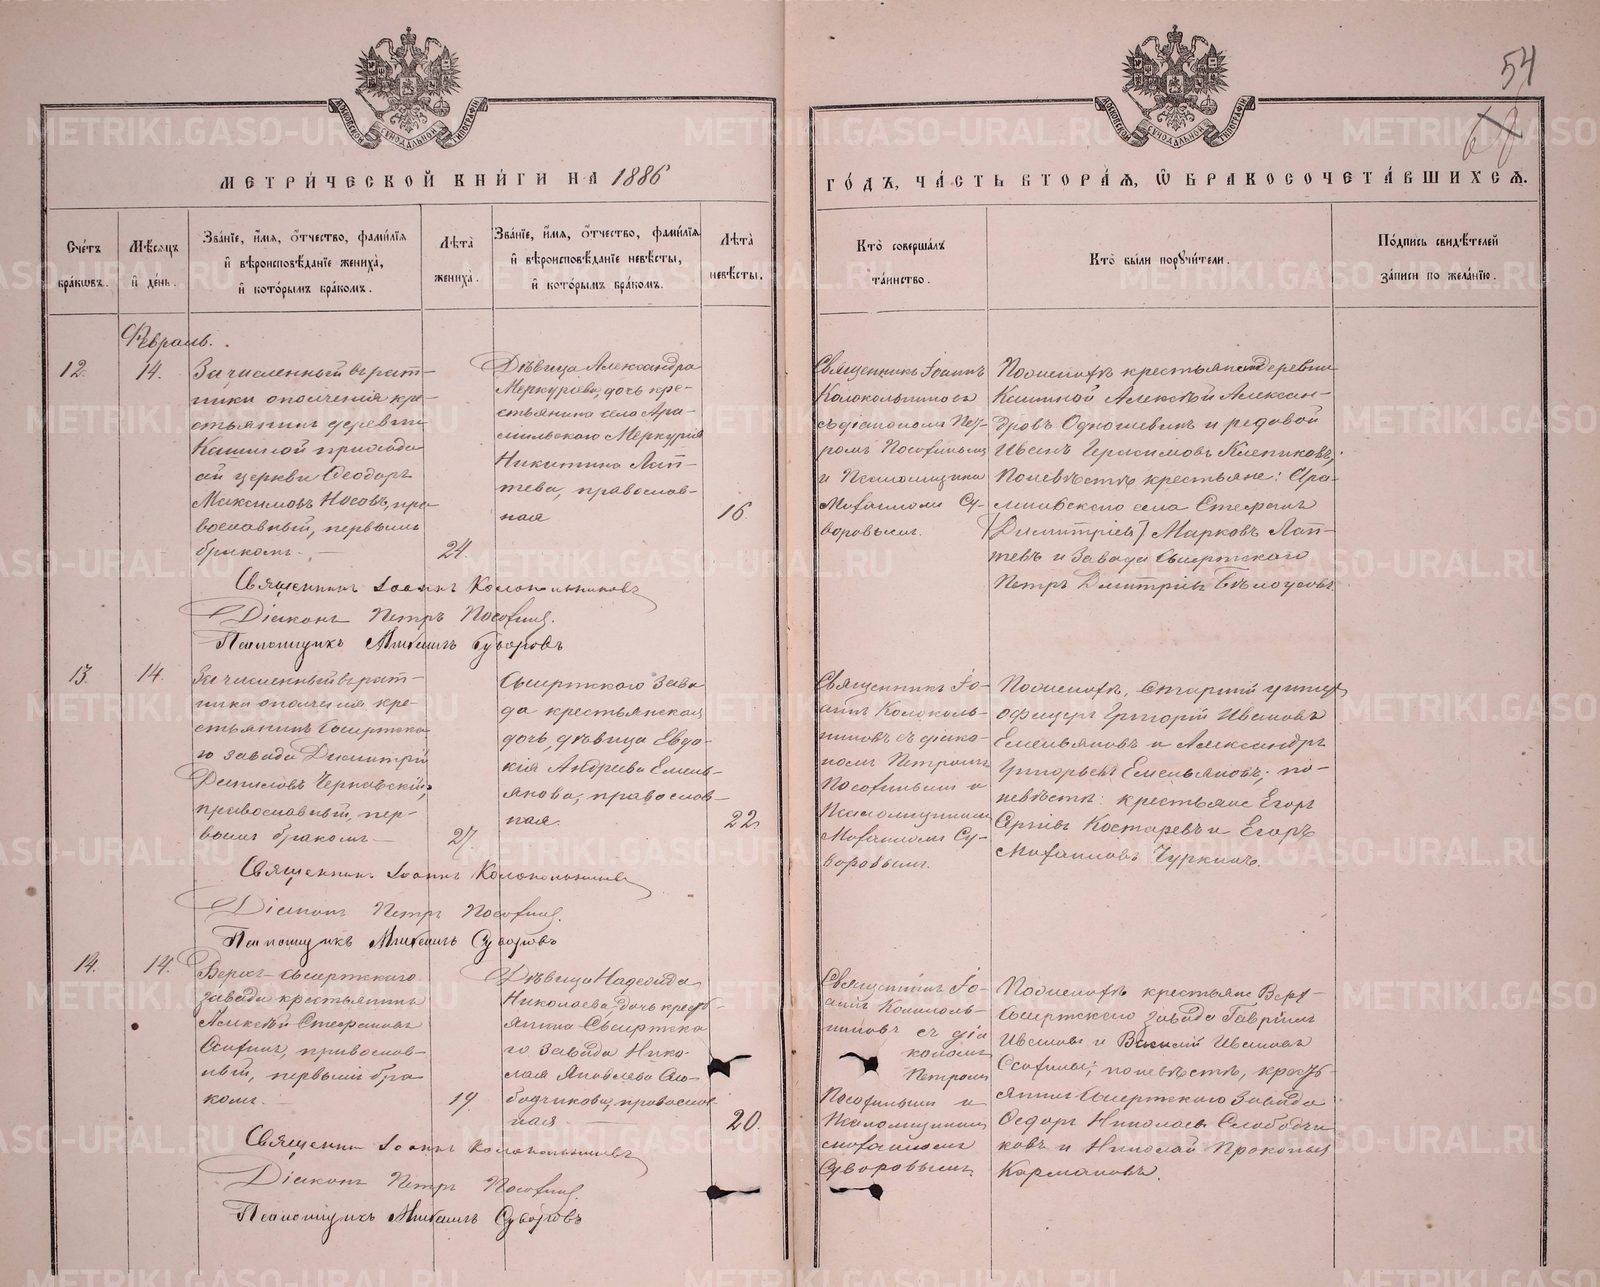 54
МЕТРИ́ЧЕСКОЙ КНИ́ГИ НА 1886
ГО́ДЪ, ЧА́СТЬ ВТОРА́Я, Ѽ БРАКОСОЧЕТА́ВШИХСЯ.
Сче́тъ бра́кѡвъ.
Мѣ́сяцъ и҆ де́нь.
Зва́нїе, и҆́мя, ѻ҆́тчество, фами́лїя
и҆ вѣроисповѣ́данїе жениха̀,
и҆ кото́рымъ бра́комъ.
Лѣ́та жениха̀.
Зва́нїе, и҆́мя, ѻ҆́тчество, фами́лїя
и҆ вѣроисповѣ́данїе невѣ́сты,
и҆ кото́рымъ бра́комъ.
Лѣ́та невѣ́сты.
Кто̀ соверша́лъ
та́инство.
Кто̀ бы́ли порꙋчи́тели.
По́дпись свидѣ́телей
за́писи по жела́нїю.
Февраль.
12.
14.
Зачисленный въ рат-
ники ополченія кре-
стьянинъ деревни
Кашиной прихода
сей церкви Ѳеодоръ
Максимовъ Носовъ, пра-
вославный, первымъ
бракомъ.
24.
Дѣвица Александра
Меркурьева, дочь кре-
стьянина села Ара-
мильскаго Меркурія
Никитина Лап-
тева, православ-
ная
16
Священникъ Іоаннъ
Колокольниковъ
съ діакономъ Пет-
ромъ
и Псаломщикомъ
Михаиломъ Су-
воровымъ.
По женихѣ крестьяне деревни
Кашиной Алексѣй Алексан-
дровъ и рядовой
Иванъ Герасимовъ
По невѣстѣ крестьяне: Ара-
мильскаго села Стефанъ
[Димитріев] Марковъ Лап-
тевъ и Завода Сысертскаго
Петръ Дмитріевъ Бѣлоусовъ
Священникъ Іоаннъ Колокольниковъ
Діаконъ Петръ
Псаломщикъ Михаилъ Суворовъ
13.
14.
Зачисленный въ рат-
ники ополченія кре-
стьянинъ Сысертска-
го завода Димитрій
Даниловъ Чернавскій,
православный, пер-
вымъ бракомъ
27.
Сысертскаго Заво
да крестьянская
дочь, дѣвица Евдо-
кія Андреева Емель-
янова, православ-
ная.
22.
Священникъ Іо-
аннъ Колоколь-
никовъ съ діако-
номъ Петромъ
и
Псаломщикомъ
Михаиломъ Су-
воровымъ.
По женихѣ, старшій унтеръ
офицеръ Григорій Ивановъ
Емельяновъ и Александръ
Григорьевъ Емельяновъ; по
невѣстѣ: крестьяне Егоръ
Сергіевъ Костаревъ и Егоръ
Михаиловъ Чуркинъ.
Священникъ Іоаннъ Колокольниковъ
Діаконъ Петръ
Псаломщикъ Михаилъ Суворовъ
14.
14.
Верхъ-Сысертскаго
завода крестьянинъ
Алексѣй Стефановъ
православ-
ный, первымъ бра
комъ.
19.
Дѣвица Надежда
Николаева, дочь кресть
янина Сысертска
го Завода Нико-
лая Яковлева Сло-
бодчикова, православ
ная
20.
Священникъ Іо-
аннъ Колоколь-
никовъ съ діа
кономъ
Петромъ
и
Псаломщикомъ
Михаиломъ
Суворовымъ.
По женихѣ крестьяне Верх-
Сысертскаго завода Гавріилъ
Ивановъ и Василій Ивановъ
по невѣстѣ, кресть
янинъ Сысертскаго Завода
Ѳедоръ Николаевъ Слободчи
ковъ и Николай Прокопьевъ
Кармановъ.
Священникъ Іоаннъ Колокольниковъ
Діаконъ Петръ
Псаломщикъ Михаилъ Суворовъ
METRIKI.GASO-URAL.RU